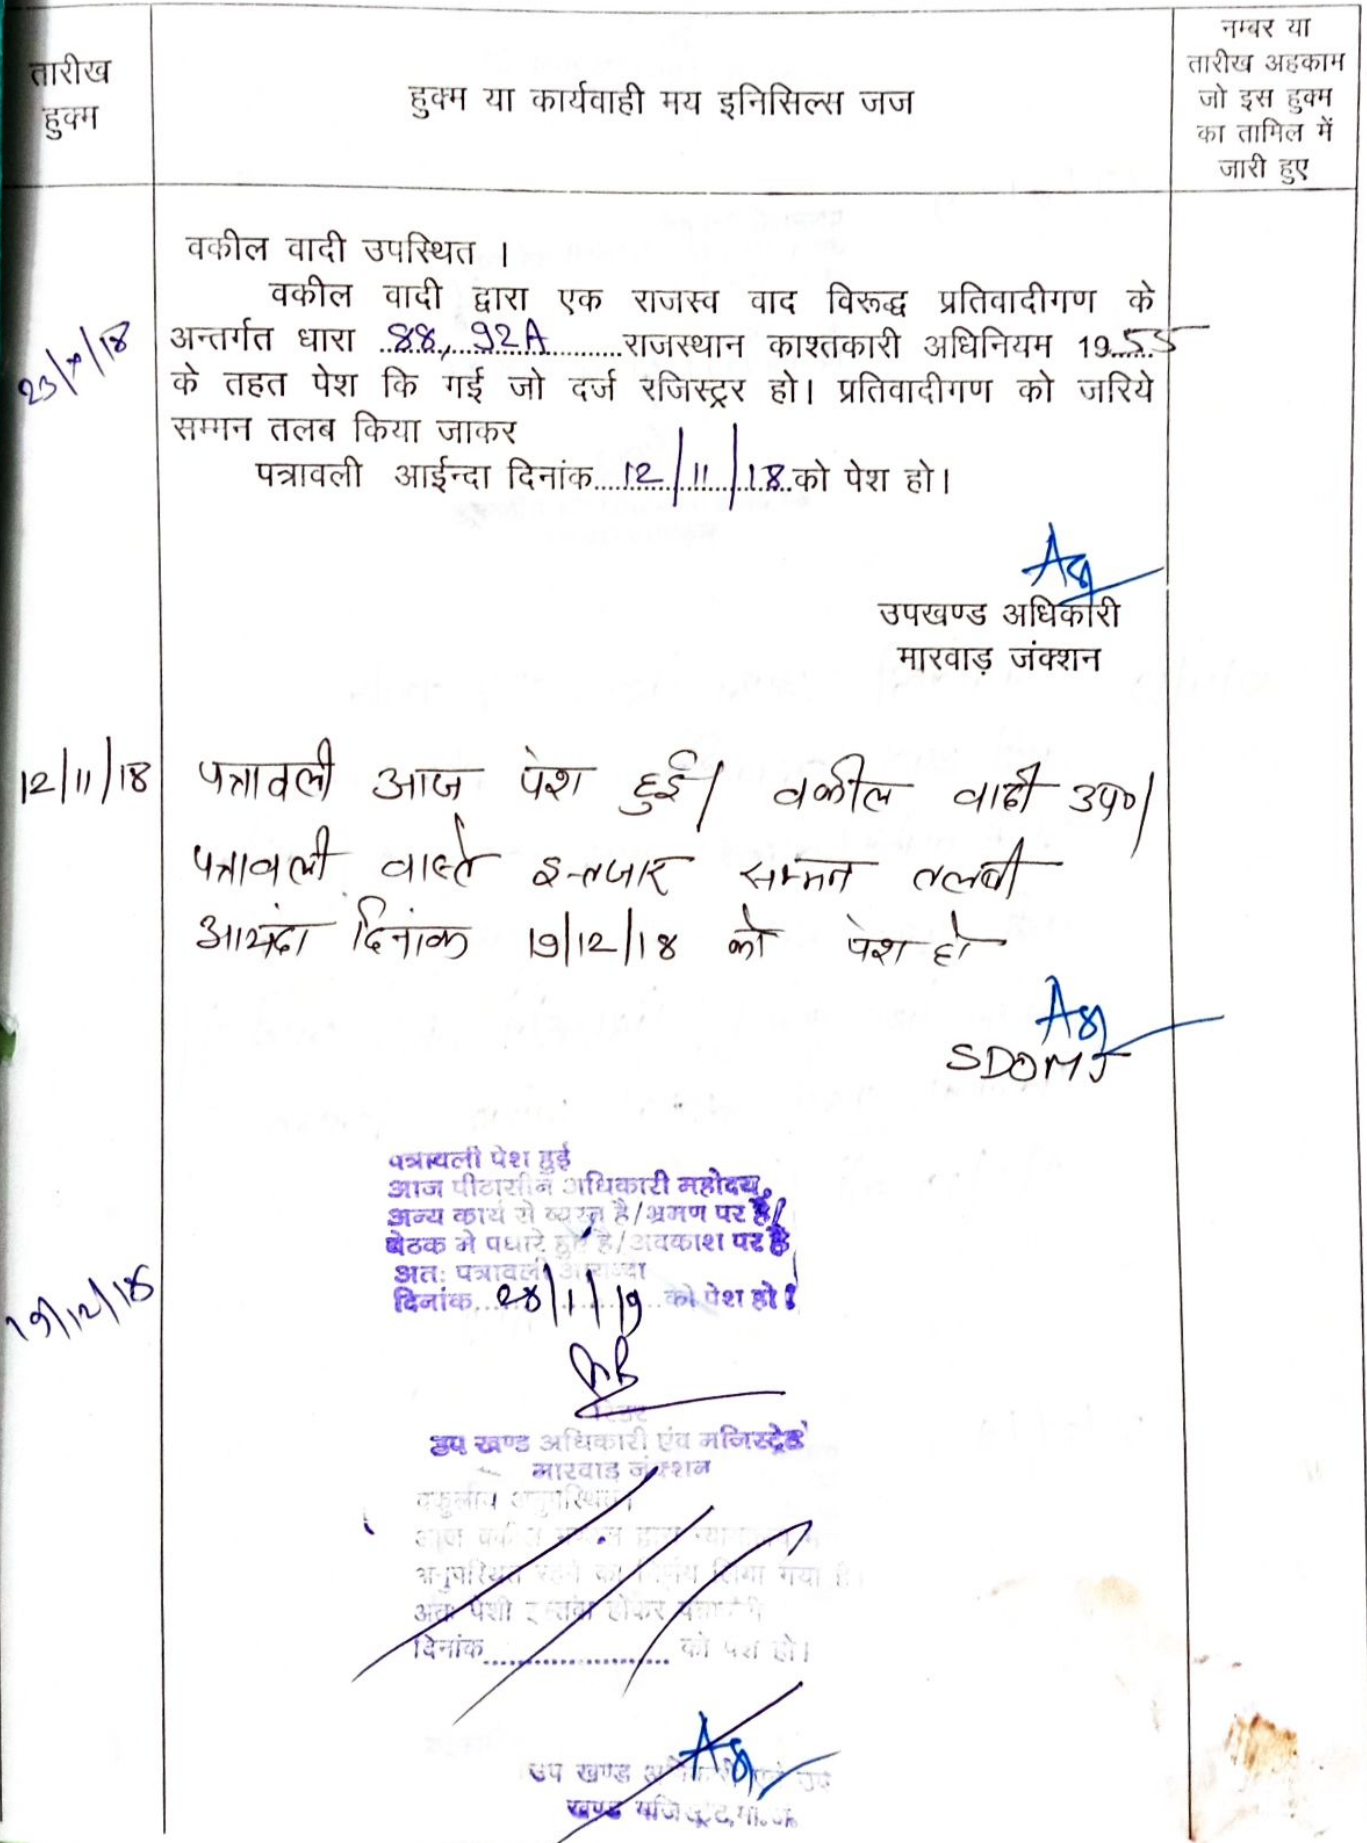 तारीख
हुक्म
हुक्म या कार्यवाही मय इनिसिल्स जज
नम्बर या
तारीख अहकाम
जो इस हुक्म
का तामिल में
जारी हुए
वकील वादी उपस्थित ।
वकील वादी द्वारा एक राजस्व वाद विरूद्ध प्रतिवादीगण के
अन्तर्गत धारा 88, 92A राजस्थान काश्तकारी अधिनियम 1955
के तहत पेश कि गई जो दर्ज रजिस्ट्रर हो। प्रतिवादीगण को जरिये
सम्मन तलब किया जाकर
पत्रावली आईन्दा दिनांक 12/11/18 को पेश हो।
उपखण्ड अधिकारी
मारवाड़ जंक्शन
12/11/18 पत्रावली आज पेश हुई। वकील वादी उप०।
पत्रावली वास्ते इन्तजार सम्मन तलबी
आयंदा दिनांक 19/12/18 को पेश हो
SDOMJ
19/12/18
पत्रावली पेश हुई
आज पीठासीन अधिकारी महोदय,
अन्य कार्य से व्यस्त है/भ्रमण पर है/
बैठक मे पधारे हुए है/अवकाश पर है
अतः पत्रावली आयन्दा
दिनांक 28/1/19 को पेश हो।
रीडर
उप खण्ड अधिकारी एंव मजिस्ट्रेट
मारवाड़ जंक्शन
अनुपस्थित।
अनुपस्थित रहने का निर्णय लिया गया है।
अतः पेशी होकर
दिनांक को पेश हो।
उप खण्ड
खण्ड मजिस्ट्रेट, मा.ज.